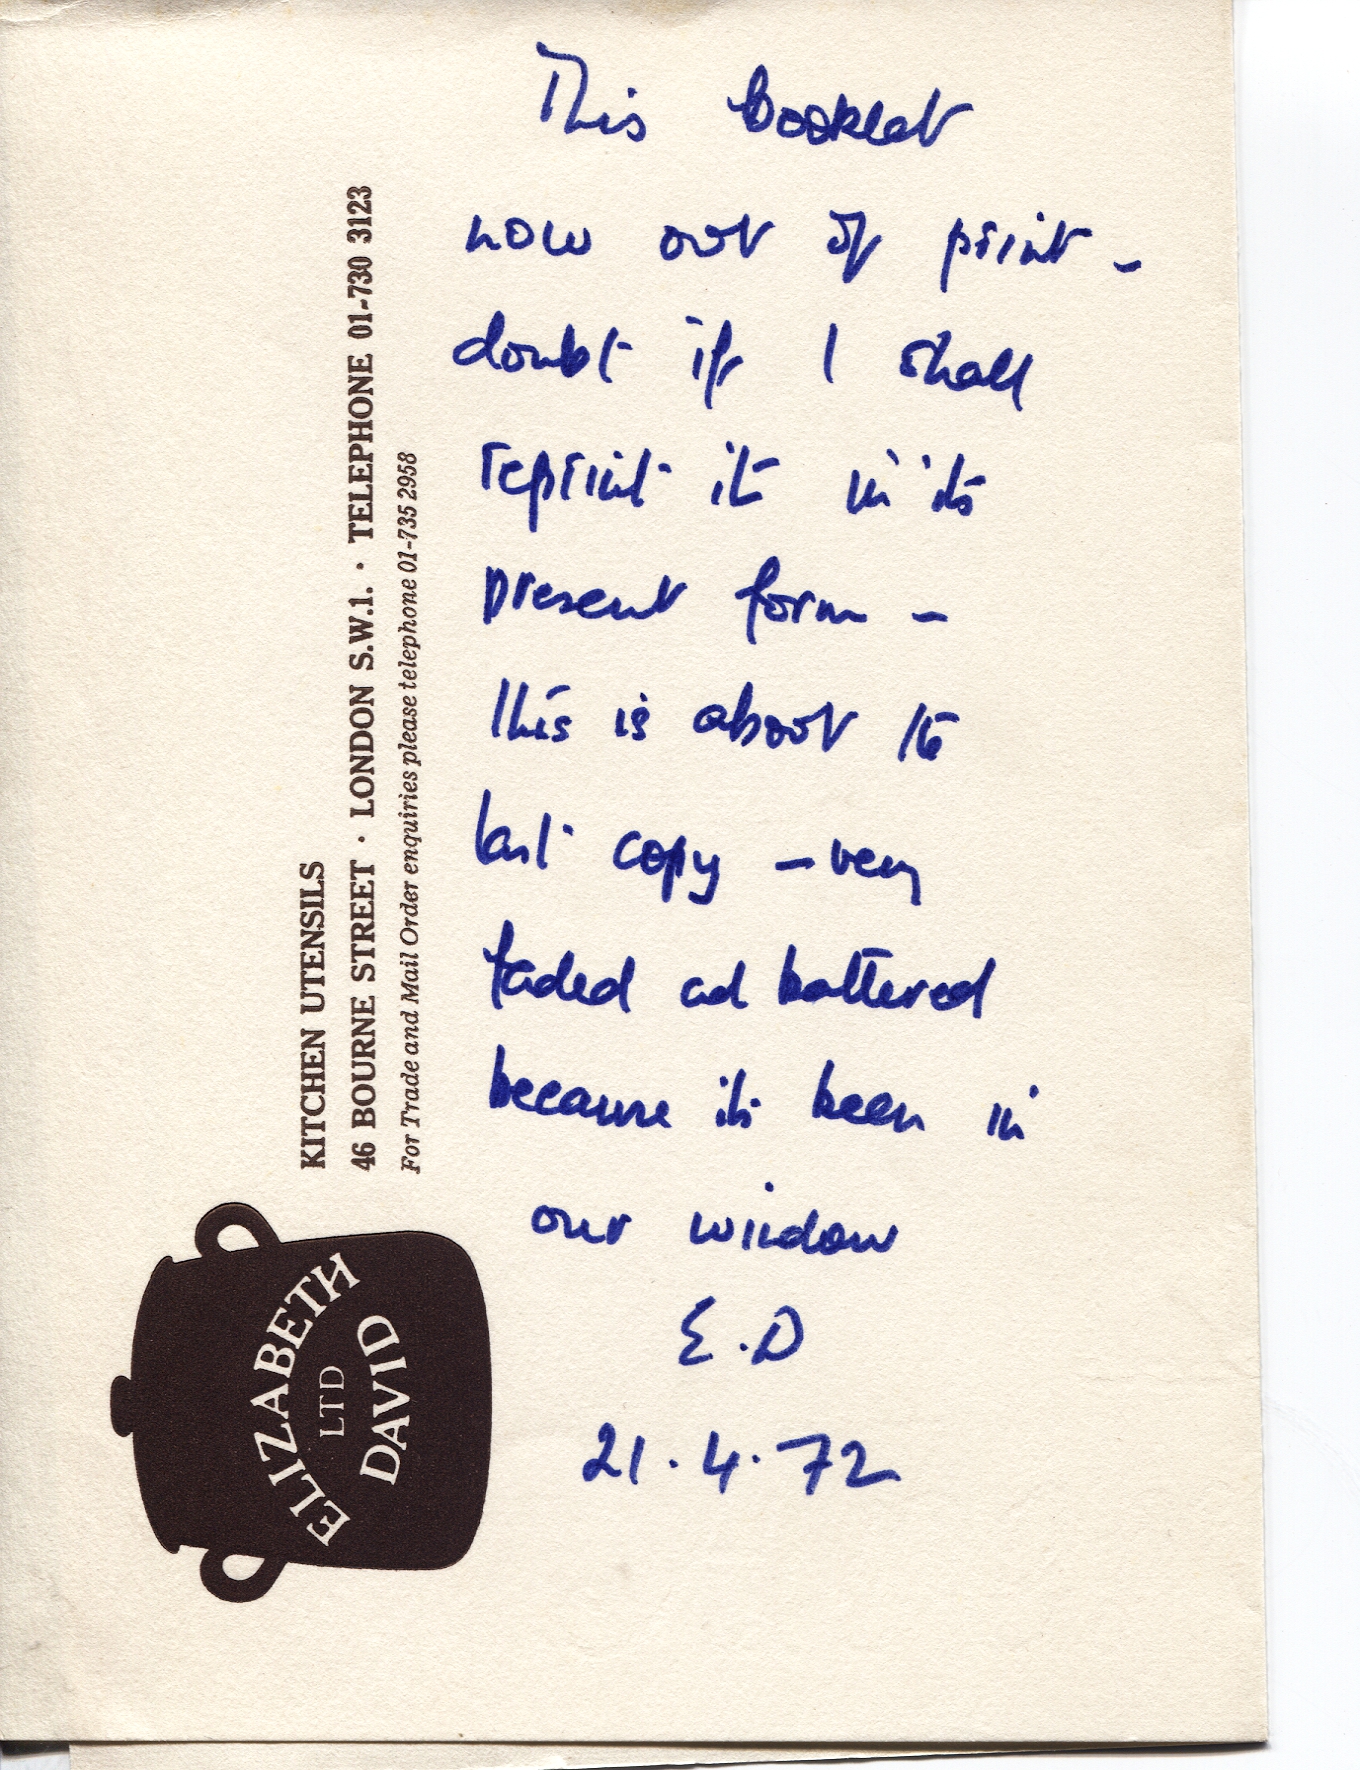 This booklet
now out of print -
doubt if I shall
reprint it in its
present form -
This is about the
last copy - very
faded and battered
because its been in
our window
E.D
21.4.72
KITCHEN UTENSILS
46 BOURNE STREET · LONDON S.W.1. · TELEPHONE 01-730 3123
For Trade and Mail Order enquiries please telephone 01-735 2958
ELIZABETH
LTD
DAVID